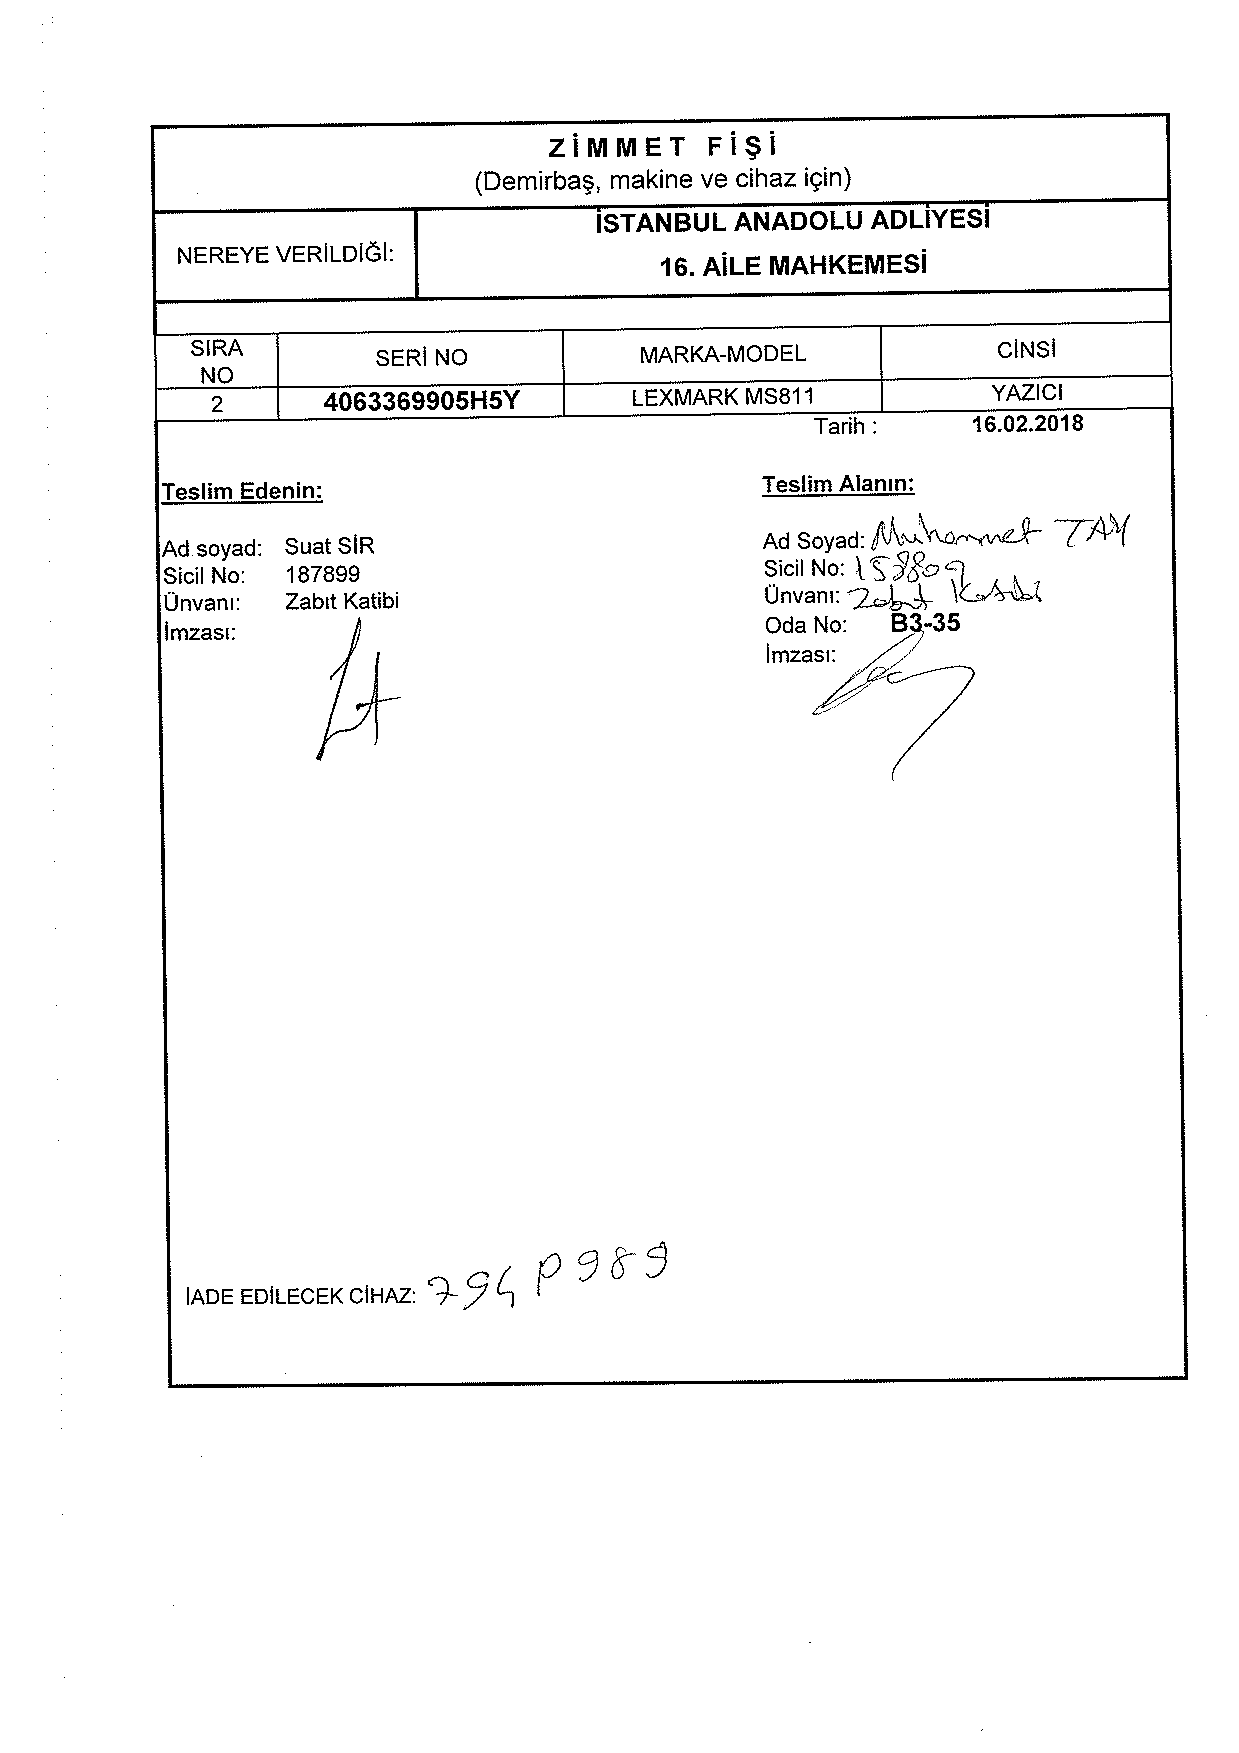 ZİMMET FİŞİ
(Demirbaş, makine ve cihaz için)
NEREYE VERİLDİĞİ:
İSTANBUL ANADOLU ADLİYESİ
16. AİLE MAHKEMESİ
SIRA NO SERİ NO MARKA-MODEL CİNSİ
2 4063369905H5Y LEXMARK MS811 YAZICI
Tarih : 16.02.2018
Teslim Edenin:
Ad soyad: Suat SİR
Sicil No: 187899
Ünvanı: Zabıt Katibi
İmzası:
Teslim Alanın:
Ad Soyad: Muhammet TAY
Sicil No:
Ünvanı: Zabıt Katibi
Oda No: B3-35
İmzası:
İADE EDİLECEK CİHAZ: 794P989